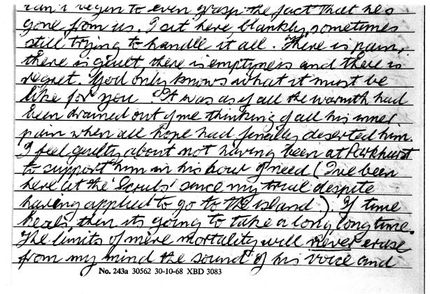 can't begin to even grasp the fact that he's
gone from us. I sit here, blankly, sometimes
still trying to handle it all. There is pain,
there is guilt there is emptyness and there is
regret. God only knows what it must be
like for you. It was as if all the warmth had
been drained out of me thinking of all his inner
pain when all hope had finally deserted him.
I feel guilty about not having been at Parkhurst
to support him in his hour of need (I've been
here at the Scrubs' since my trial despite
having applied to go to the island). If time
heals, then its going to take a long long time.
The limits of mere mortality will never erase
from my mind the sound of his voice and
No. 243a 30562 30-10-68 XBD 3083